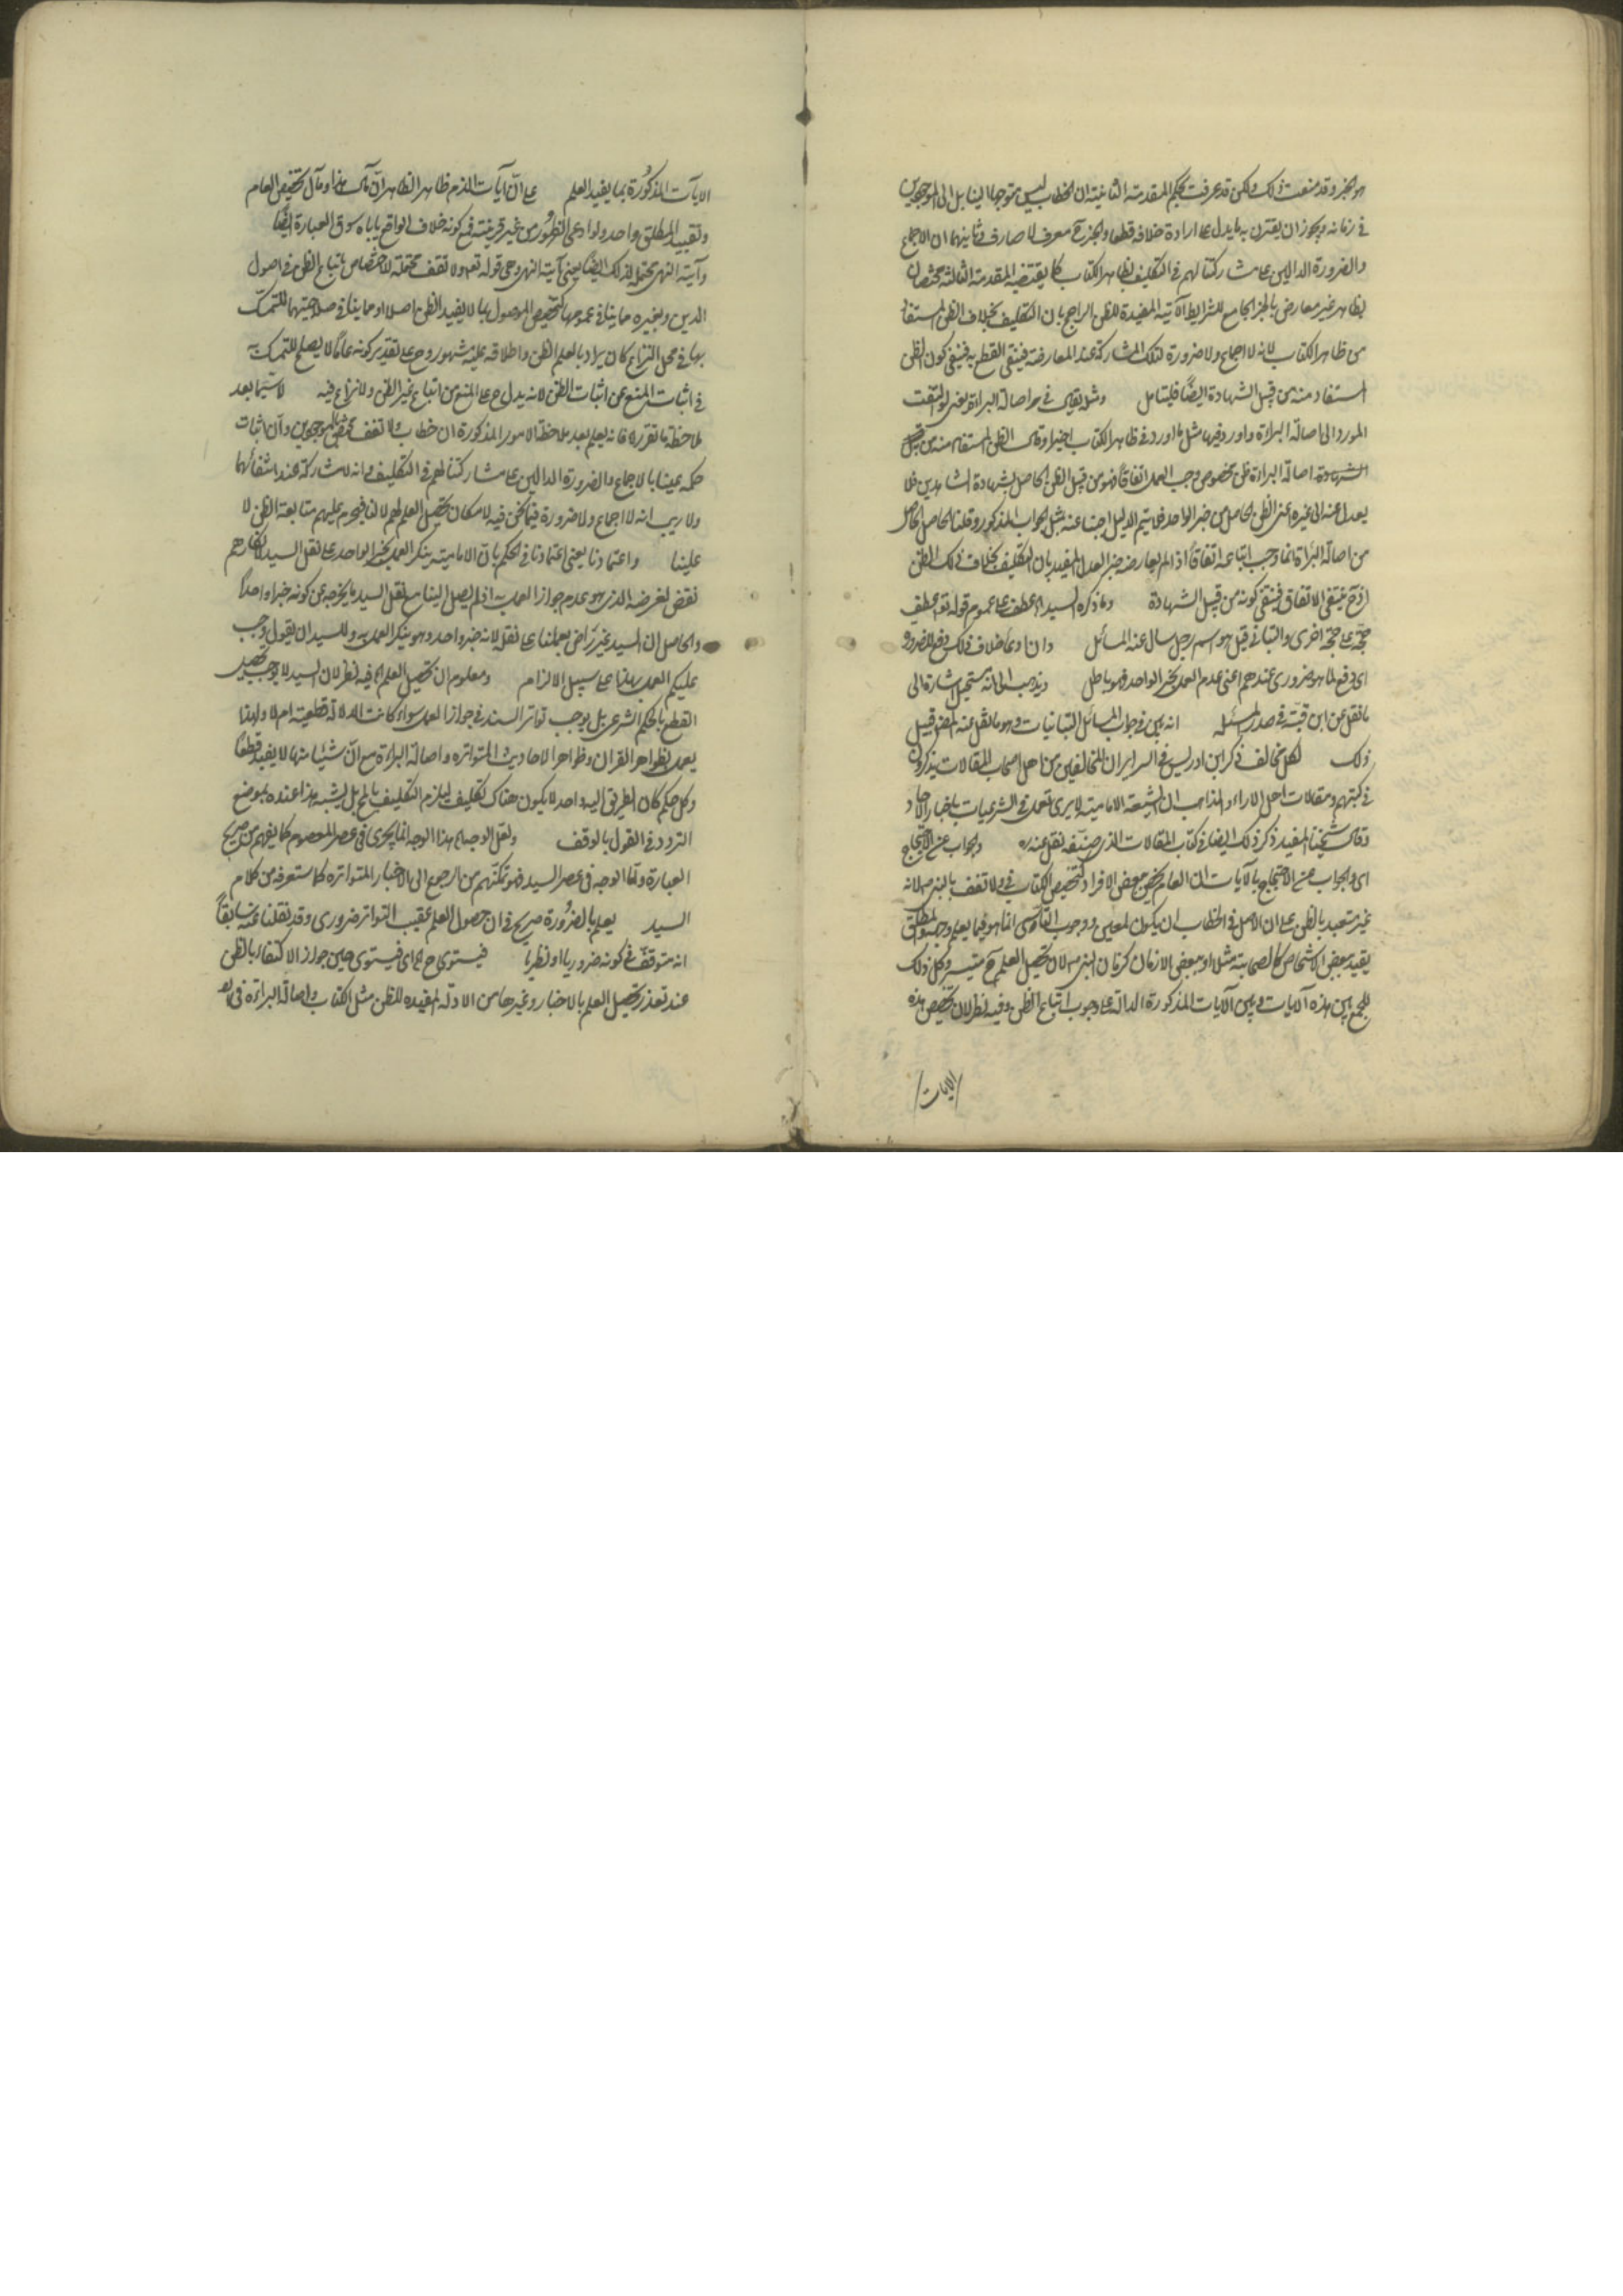 هو الخبر وقد منعت ذلك ولكن قد عرفت بحكم المقدمة الثانية ان الخطاب ليس متوجها الينا بل الى الموجودين
في زمانه ويجوز ان يقترن به ما يدل على ارادة خلافه قطعا والخبر ح معرف لا صارف وثانيهما ان الاجماع
والضرورة الدالين على مشاركتنا لهم في التكليف بظاهر الكتاب كما يقتضيه المقدمة الثالثة مختصان
بظاهر غير معارض بالخبر الجامع للشرايط الآتية المفيدة للظن الراجح بان التكليف بخلاف الظن المستفاد
من ظاهر الكتاب لانه لا اجماع ولا ضرورة لتلك المشاركة عند المعارضة فينتفي القطع به فينتفي كون الظن
المستفاد منه من قبيل الشهادة ايضا فليتامل ومثله يقال في اصالة البراءة يعني لو التفت
المورد الى اصالة البراءة واورد فيها مثل ما اورد في ظاهر الكتاب اخيرا وقال الظن المستفاد منه من قبيل
الشهادة اصالة البراءة ظن مخصوص وجب العمل اتفاقا فهو من قبيل الظن الحاصل بشهادة الشاهدين فلا
يعدل عنه الى غيره اعني الظن الحاصل من خبر الواحد فلا يتم الدليل اجبنا عنه بمثل الجواب المذكور وقلنا الحاصل
من اصالة البراءة انما وجب اتباعه اتفاقا اذا لم يعارضه خبر العدل المفيد بان التكليف بخلاف ذلك الظن
اذ ح ينتفي الاتفاق فينتفي كونه من قبيل الشهادة وما ذكره السيد اه عطف على عموم قوله تع عطف
حجة على حجة اخرى والتباني قيل هو اسم رجل سال عنه المسائل وان ادعى خلاف ذلك دفع للضرورة
اي دفع لما هو ضروري عندهم اعني عدم العمل بخبر الواحد فهو باطل ويذهب الى انه مستحيل اشارة الى
ما نقل عن ابن قبة في صدر المسئلة انه بين في جواب المسائل التبانيات وهو ما نقل عنه المص قبيل
ذلك لكل مخالف ذكر ابن ادريس في السراير ان المخالفين من اصحاب المقالات يذكرون
في كتبهم ومقالات اهل الاراء والمذاهب ان الشيعة الامامية لا يرى العمل في الشرعيات باخبار الآحاد
وقال شيخنا المفيد ذكر ذلك ايضا في كتاب المقالات الذي صنفه نقل عنه ره والجواب عن الاحتجاج
اي والجواب عن الاحتجاج بالآيات ان العام يخص ببعض الافراد كتخصيص الكتاب في ولا تقف بالنبي ص لانه
غير متعبد بالظن على ان الاصل في الخطاب ان يكون لمعين ووجوب التأسي انما هو فيما يعلم وجهه والمطلق
يقيد ببعض الاشخاص كالصحابة مثلا او ببعض الازمان كزمان النبي ص لان تحصيل العلم ح متيسر وكل ذلك
للجمع بين هذه الآيات وبين الآيات المذكورة الدالة على وجوب اتباع الظن وفيه نظر لان تخصيص هذه
الايات
الآيات المذكورة بما يفيد العلم على ان آيات الذم ظاهر الظاهر ان مآل هذا ومآل تخصيص العام
وتقييد المطلق واحد ولو ادعى الظهور من غير قرينة فمع كونه خلاف الواقع ياباه سوق العبارة ايضا
وآية النهي محتملة لذلك ايضا يعني آية النهي وهي قوله تع ولا تقف محتملة للاختصاص باتباع الظن في اصول
الدين وبغيره مما ينافي عمومها كتخصيص الموصول بما لا يفيد الظن اصلا او مما ينافي صلاحيتها للتمسك
بها في محل النزاع كان يراد بالعلم الظن واطلاقه عليه مشهور وح على تقدير كونه عاما لا يصلح للتمسك به
في اثبات المنع من اثبات الظن لانه يدل ح على المنع من اتباع غير الظن ولا نزاع فيه لا سيما بعد
ملاحظة ما تقرر فانه يعلم بعد ملاحظة الامور المذكورة ان خطاب ولا تقف مختص بالموجودين وان اثبات
حكمه علينا بالاجماع والضرورة الدالين على مشاركتنا لهم في التكليف وانه لا مشاركة عند انتفائهما
ولا ريب انه لا اجماع ولا ضرورة فيما نحن فيه لامكان تحصيل العلم لهم لا لنا فيحرم عليهم متابعة الظن لا
علينا واعتمادنا يعني اعتمادنا في الحكم بان الامامية ينكر العمل بخبر الواحد على نقل السيد لانكارهم
نقض لغرضه الذي هو عدم جواز العمل به اذ لم يصل الينا مع نقل السيد ما يخرجه عن كونه خبرا واحدا
والحاصل ان السيد غير راض بعملنا على نقله لانه خبر واحد وهو ينكر العمل به وللسيد ان يقول وجب
عليكم العمل بهذا على سبيل الالزام ومعلوم ان تحصيل العلم اه فيه نظر لان السيد لا يوجب تحصيل
القطع بالحكم الشرعي بل يوجب تواتر السند في جواز العمل سواء كانت الدلالة قطعية ام لا ولهذا
يعمل بظواهر القران وظواهر الاحاديث المتواتره واصالة البراءة مع ان شيئا منها لا يفيد قطعا
وكل حكم كان الطريق اليه واحد لا يكون هناك تكليف ليلزم التكليف بالمحال يشبه هذا عنده بموضع
التردد في القول بالوقف ولعل الوجه اه هذا الوجه انما يجري في عصر المعصوم كما يفهم من صريح
العبارة واما الوجه في عصر السيد فهو تمكنهم من الرجوع الى الاخبار المتواتره كما ستعرفه من كلام
السيد يعلم بالضرورة صريح في ان حصول العلم عقيب التواتر ضروري وقد نقلنا عنه سابقا
انه متوقف في كونه ضروريا او نظريا فيستوي ح اه اي فيستوي حين جواز الاكتفاء بالظن
عند تعذر تحصيل العلم بالاخبار وغيرها من الادلة المفيده للظن مثل الكتاب واصالة البراءة في